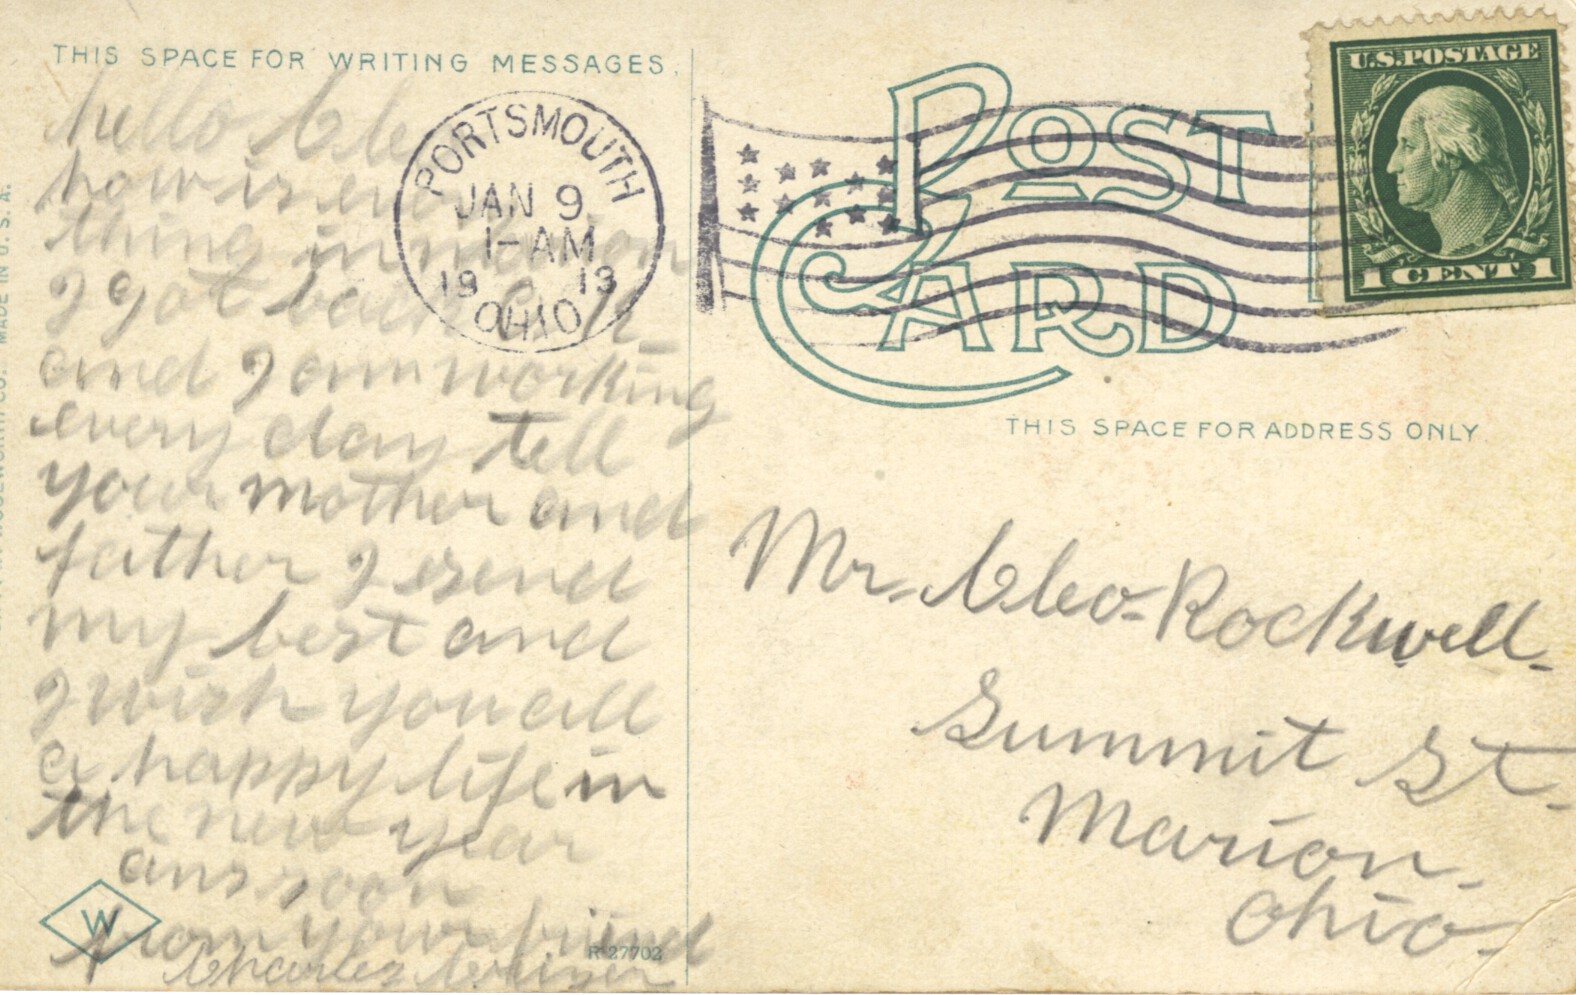 THIS SPACE FOR WRITING MESSAGES.
hello Cleo
how is every
thing in marion
I got back all
and I am working
every day tell
your mother and
father I send
my best and
I wish you all
a happy life in
the new year
ans soon
from your friend
Charles
W
R-27702
MADE IN U. S. A.
PORTSMOUTH
JAN 9
1-AM
19 13
OHIO
POST
CARD
U.S. POSTAGE
1 CENT 1
THIS SPACE FOR ADDRESS ONLY
Mr. Cleo Rockwell
Summit St.
Marion
Ohio